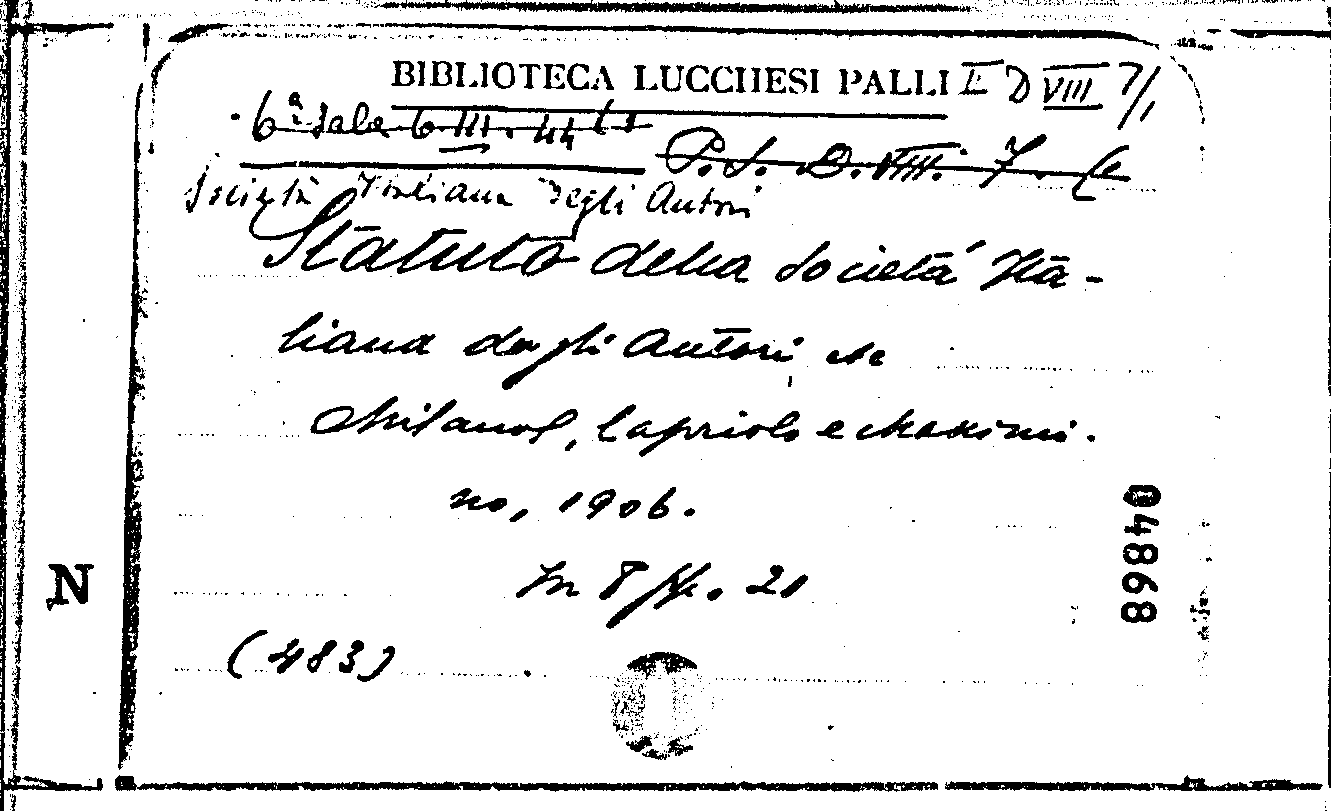 BIBLIOTECA LUCCHESI PALLI E D VIII 7/1
6ª Sala 6 III. 44
P.S. D. VIII. 7. 6
Società Italiana degli Autori
Statuto della Società Ita-
liana degli Autori etc
Milano, Capriolo e Massimi-
no, 1906.
In 8 pp. 21
(483)
N
04868